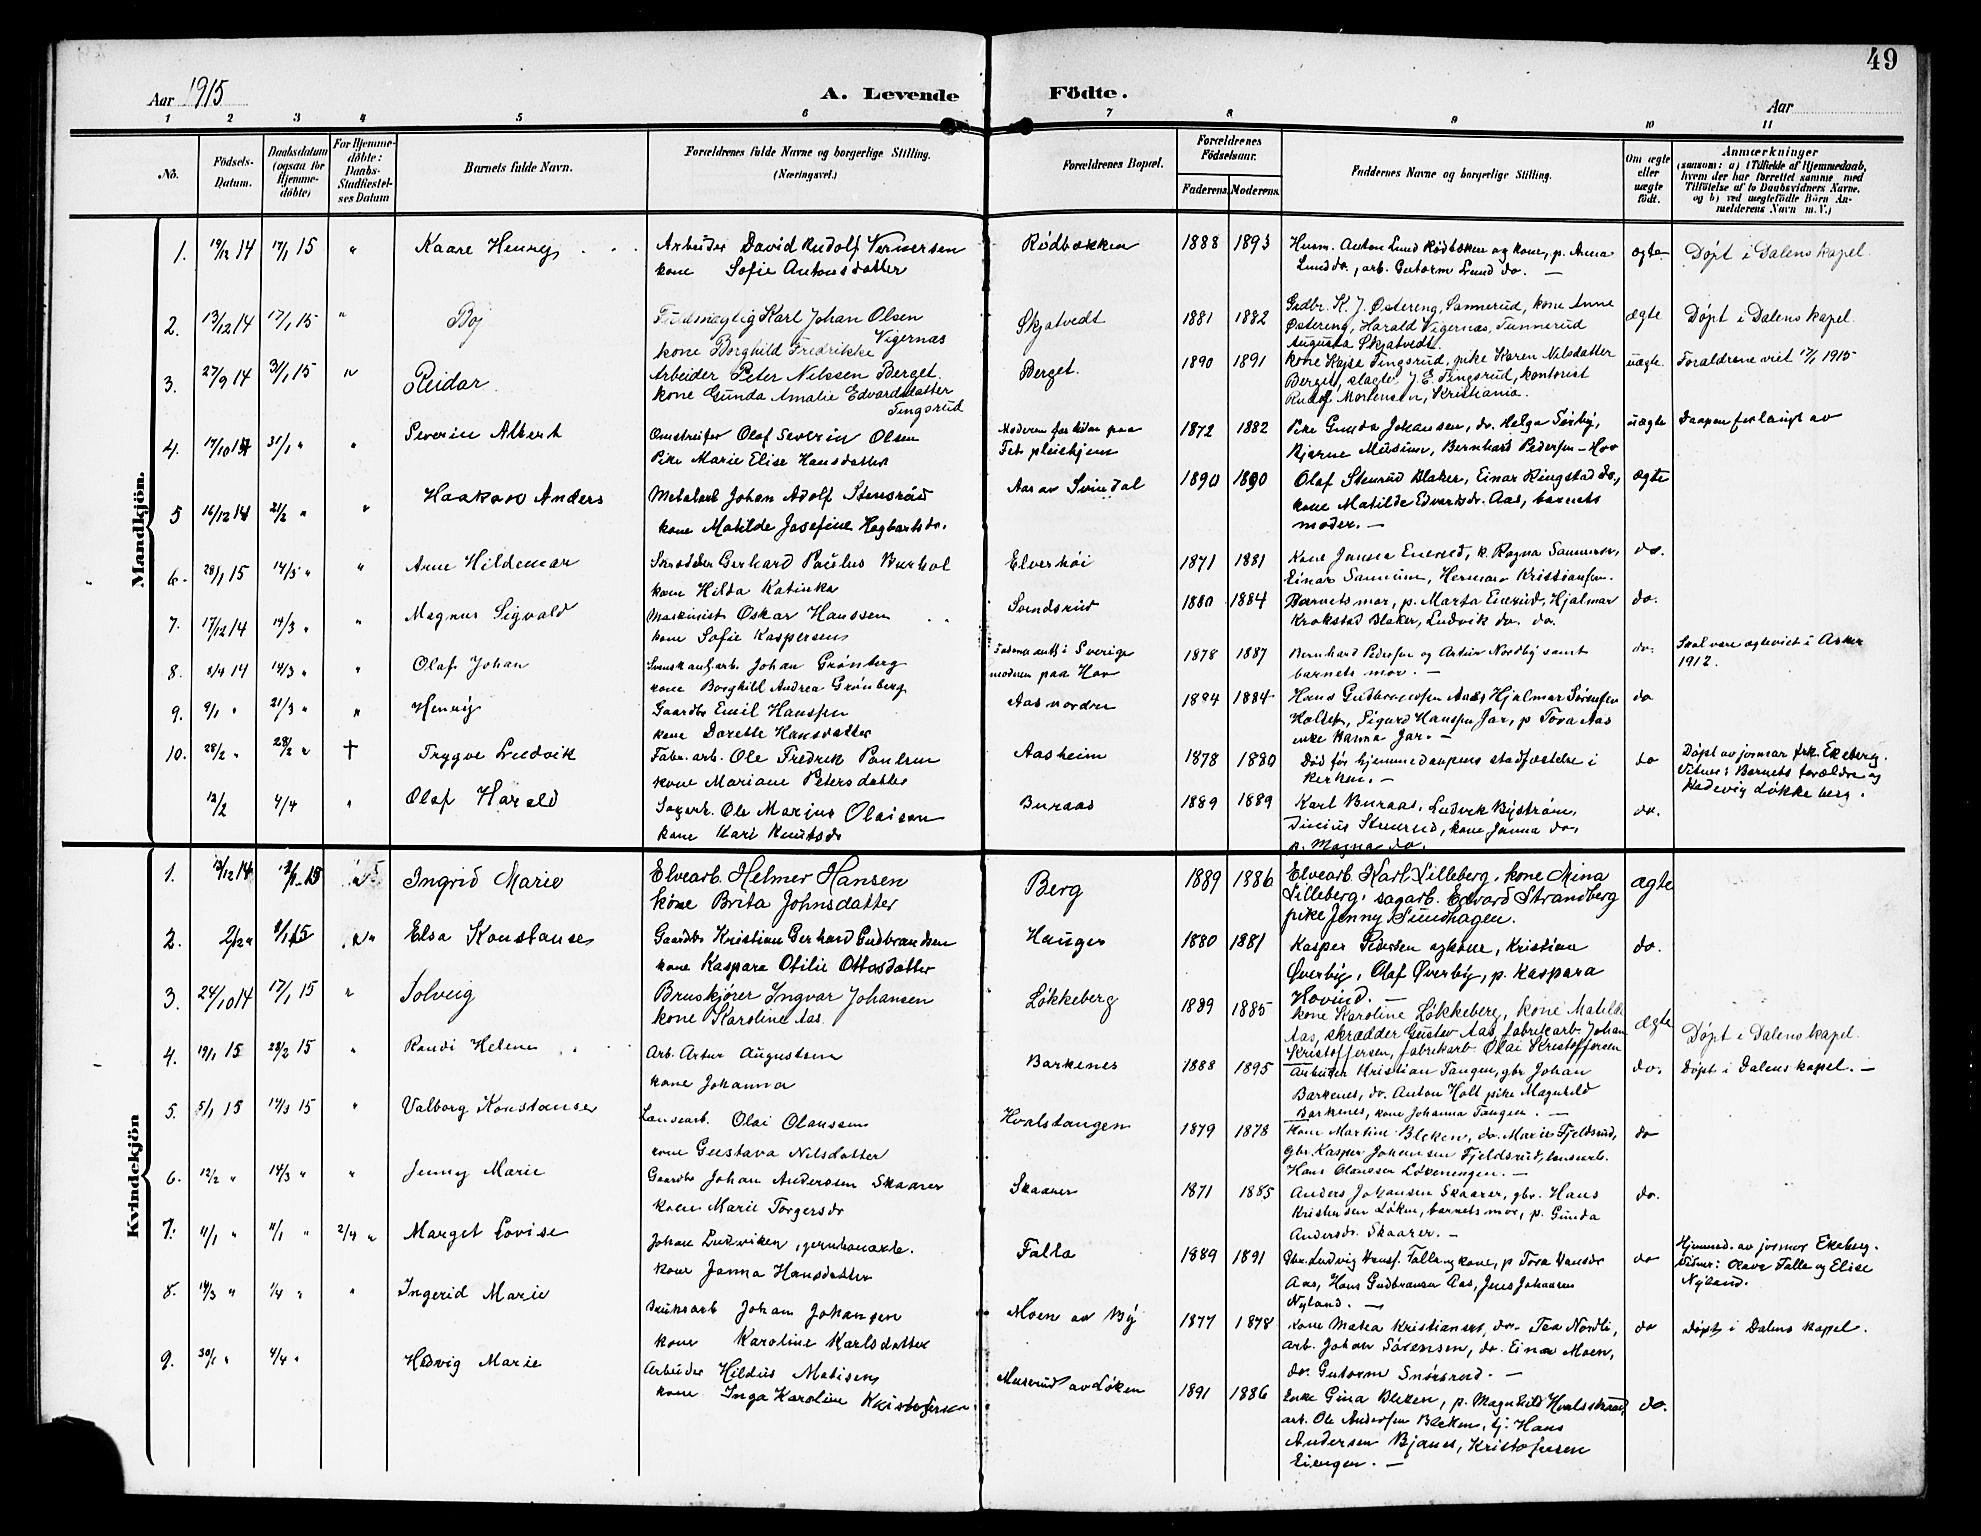 49
Aar 1915
A. Levende Födte.
Aar
1 2 3 4 5 6 7 8 9 10 11
No.
Födsels-
Datum.
Daabsdatum
(ogsaa for
Hjemme-
döbte)
For Hjemme-
döbte:
Daabs-
Stadfæstel-
ses Datum
Barnets fulde Navn.
Forældrenes fulde Navne og borgerlige Stilling.
(Næringsvei.)
Forældrenes Bopæl.
Forældrenes
Födselsaar.
Faderens. Moderens.
Faddernes Navne og borgerlige Stilling.
Om ægte
eller
uægte
födt.
Anmærkninger
(saasom: a) i Tilfælde af Hjemmedaab,
hvem der har forrettet samme med
Tilföielse af to Daabsvidners Navne.
og b) ved uægtefödte Börn An-
melderens Navn m. V.)
Mandkjön.
1. 19/12 14 17/1 15 " Kaare Henry Arbeider David Rudolf Vernersen Rødbakken 1888 1893 Husm. Anton Lund Rødbakken og kone, p. Anna ægte Døpt i Dalens kapel.
kone Sofie Antonsdatter Lund do., arb. Gutorm Lund do. —
2. 13/12 14 17/1 15 " Boj Fuldmægtig Karl Johan Olsen Skjatvedt 1881 1882 Gdbr. K. J. Østereng, Sannerud, kone Anne ægte Døpt i Dalens kapel.
Vigernæs Østereng, Harald Vigernæs, Tunnerud
kone Borghild Fredrikke Augusta Skjatvedt.
3. 27/9 14 31/1 15 " Reidar. Arbeider Peter Nilssen Berget. Berget. 1890 1891 kone Kajse Tingsrud, pike Karen Nilsdatter uægte. Forældrene viet 17/1 1915
kone Gunda Amalie Edvardsdatter Berget, slagter J. E. Tingsrud, kontorist
Tingsrud Rudolf Mortensen, Kristiania.
4. 17/10 14 31/1 " " Severin Albert Omstreifer Olaf Severin Olsen Moderen for tiden paa 1872 1882 Pike Gunda Johansen, do. Helga Sørby, uægte Daapen forlangt av
Pike Marie Elise Hansdatter Fet pleiehjem Bjarne Musum, Bernhard Pedersen - Hov
5 16/12 14 21/2 " " Haakon Anders Metalarb Johan Adolf Stensrud Aas av Svindal 1890 1890 Olaf Stenrud Blaker, Einar Ringstad do, ægte
kone Matilde Josefine Hagbartsdr. kone Matilde Edvartsdr. Aas, barnets
moder. —
6. 28/1 15 14/3 " " Arne Hildemar Skrædder Gerhard Paulus Burhol Elverhøi 1871 1881 Kone Janna Enerud, p. Ragna Sannum, do.
kone Hilda Katinka Einar Sannum, Herman Kristiansen.
7. 17/12 14 14/3 " " Magnus Sigvald Maskinist Oskar Hanssen Svendsrud 1880 1884 Barnets mor, p. Marta Enerud, Hjalmar do.
kone Sofie Kaspersen Krokstad Blaker, Ludvik do. do.
8. 8/9 14 14/3 " " Olaf Johan Svensk anl. arb. Johan Grønberg i Sverige 1878 1887 Bernhard Pedersen og Artur Nordby samt do. Skal være egteviet i Asker
kone Borghild Andrea Grønberg moderen paa Hov barnets mor. — 1912.
9. 9/1 " 21/3 " " Henry Gaardbr Emil Hanssen Aas nordre 1884 1884 Hans Gutbrandsen Aas, Hjalmar Sørensen do
kone Dorette Hansdatter Sigurd Hansen Jar, p Tora Aas
enke Hanna Jar. —
10. 28/2 " 28/2 " † Trygve Ludvik Fabr. arb. Ole Fredrik Paulsen Aasheim 1878 1880 Død før hjemmedaapens stadfæstelse i do Døpt av jormor frk. Ekeberg.
kone Mariane Petersdatter kirken. — Vitner: Barnets forældre og
Hedevig Løkkeberg.
12/2 4/4 " Olaf Harald Sagarb. Ole Marius Olaisen Buraas 1889 1889 Karl Buraas, Ludvik Bystrøm, do.
kone Kari Knutsdr Stenrud, kone Janna do,
p. Magna do.
Kvindekjön
1. 12/12 14 15 Ingrid Marie Elvearb. Helmer Hansen Berg 1889 1886 Elvearb. Karl Lilleberg, kone Mina ægte
kone Brita Johnsdatter Lilleberg, sagarb. Edvard Strandberg
pike Jenny Sundhagen.
2. 2/12 " 15 " Elsa Konstanse Gaardbr Kristian Gerhard Gudbrandsen Hauger 1880 1881 Kasper Pedersen og kone, Kristian do.
kone Kaspara Otilie Ottosdatter Øverby, Olaf Øverby, p. Kaspara
Hovind. —
3. 24/10 14 17/1 15 " Solveig Bruskjører Ingvar Johansen Løkkeberg 1889 1885 kone Karoline Løkkeberg, kone Matilde ægte Døpt i Dalens kapel.
kone Karoline Aas. Aas, skrædder Gustav Aas, fabrikarb. Johan
Kristoffersen, fabrikarb. Olai Kristoffersen
4. 19/1 15 28/2 15 " Randi Helene Arb. Artur Augustsen Barkenes 1888 1895 Arbeider Kristian Tangen, gbr Johan do. Døpt i Dalens kapel. —
kone Johanna Barkenes, do. Anton Holt pike Magnhild
Barkenes, kone Johanna Tangen. —
5. 5/1 15 14/3 15 " Valborg Konstanse Lensearb. Olai Olaussen Hvalstangen 1879 1878 Kone Martine Bleken, do. Marie Fjeldsrud, do
kone Gustava Nilsdatter gbr. Kasper Johansen Fjeldsrud, lensearb.
Hans Olaussen Løkenengen. —
6. 12/2 " 14/3 " " Jenny Marie Gaardbr Johan Andersen Skaarer Skaarer 1871 1885 Anders Johansen Skaarer, gbr. Hans do.
kone Marie Torgersdr Kristensen Løken, barnets mor, p. Gunda
Andersdr. Skaarer. —
7. 11/1 " 11/1 " 2/4 " Margit Lovise Johan Ludviken, jernbanearb. Falla 1889 1891 Gbr. Ludvig Hansf. Falla og kone, p Tora Hansdr do Hjemmed. av jormor Ekeberg.
kone Janna Hansdatter Aas, Hans Gudbransen Aas, Jens Johansen Vitner: Olava Falla og Elise
Nyland. — Nyland.
8. 14/3 " 1/4 " " Ingerid Marie Bruksarb Johan Johansen Moen av By 1877 1878 Kone Matea Kristiansen, do. Tea Nordli, do Døpt i Dalens kapel.
kone Karoline Karlsdatter arb. Johan Sørensen, do. Einar Moen,
do. Gutorm Snorsrud. —
9. 30/1 " 4/4 " Hedvig Marie Arbeider Hildus Matisen Muserud av Løken 1891 1886 Enke Gina Bleken, p. Magnhild Hvalsstrand, do.
kone Inga Karoline Kristofersen arb. Ole Andersen Bleken, tj. Hans
Andersen Bjanes, Kristofersen
Eiengen. —